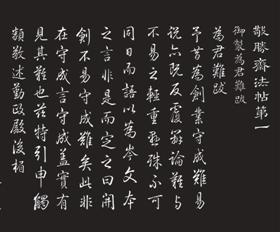 敬勝齋法帖第一
御製為君難跋
為君難跋
予嘗為創業守成難易
說六既反覆辯論難與
不易之輕重懸殊不可
同日而語以為岑文本
之言非是而定之曰開
創不易守成難矣此非
在守成言守成蓋實有
見其難也茲特引申觸
類敬述勤政殿後楣